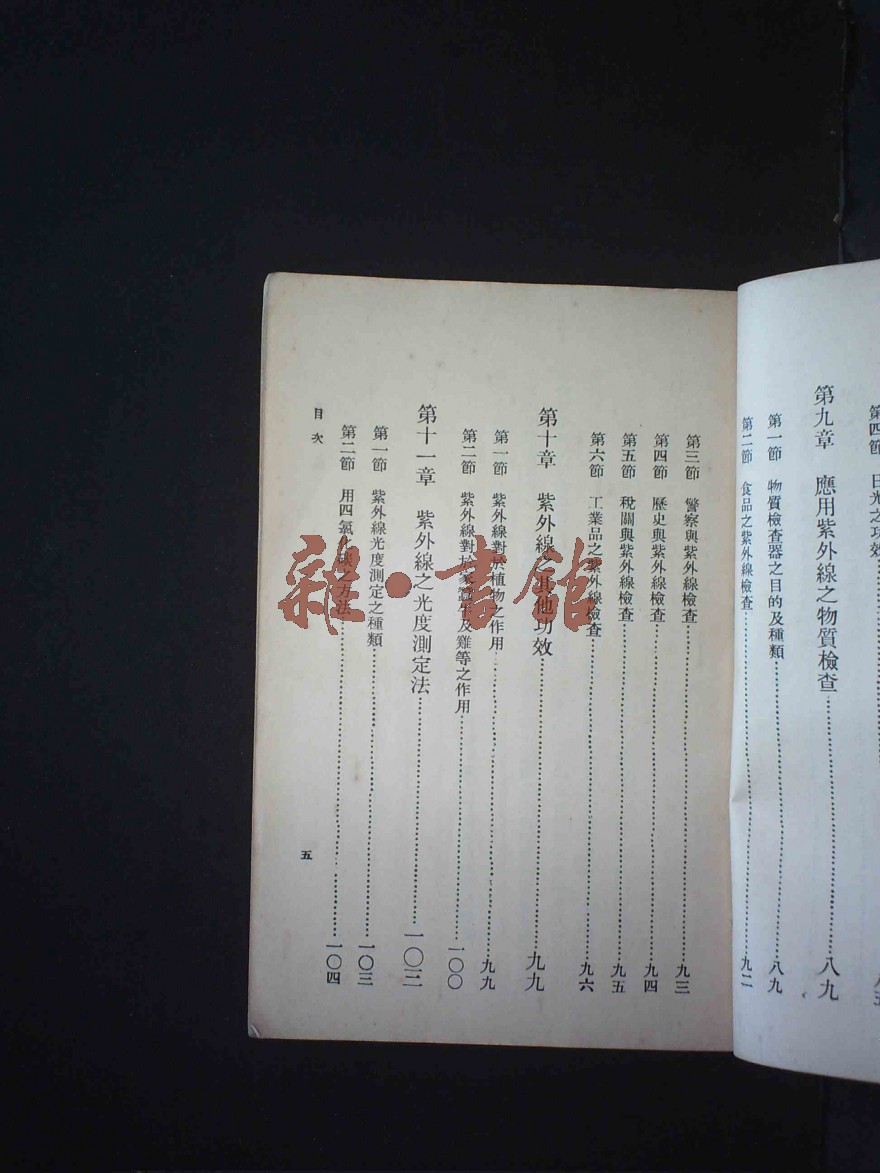 第四節 日光之功效
第九章 應用紫外線之物質檢查 八九
第一節 物質檢查器之目的及種類 八九
第二節 食品之紫外線檢查 九二
第三節 警察與紫外線檢查 九三
第四節 歷史與紫外線檢查 九四
第五節 稅關與紫外線檢查 九五
第六節 工業品之紫外線檢查 九六
第十章 紫外線之其他功效 九九
第一節 紫外線對於植物之作用 九九
第二節 紫外線對於家蠶牛及雞等之作用 一〇〇
第十一章 紫外線之光度測定法 一〇三
第一節 紫外線光度測定之種類 一〇三
第二節 用四氯化碳之方法 一〇四
目次
五
雜·書館